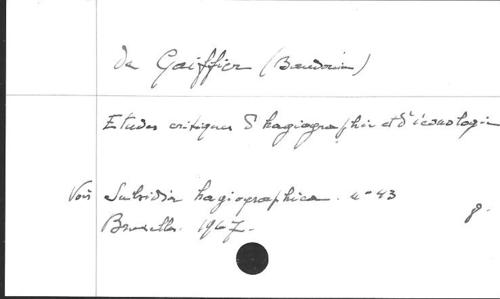 de Gaiffier (Baudouin)
Etudes critiques d'hagiographie et d'iconologie
Voir Subsidia hagiographica. n° 43
Bruxelles. 1967. 8.